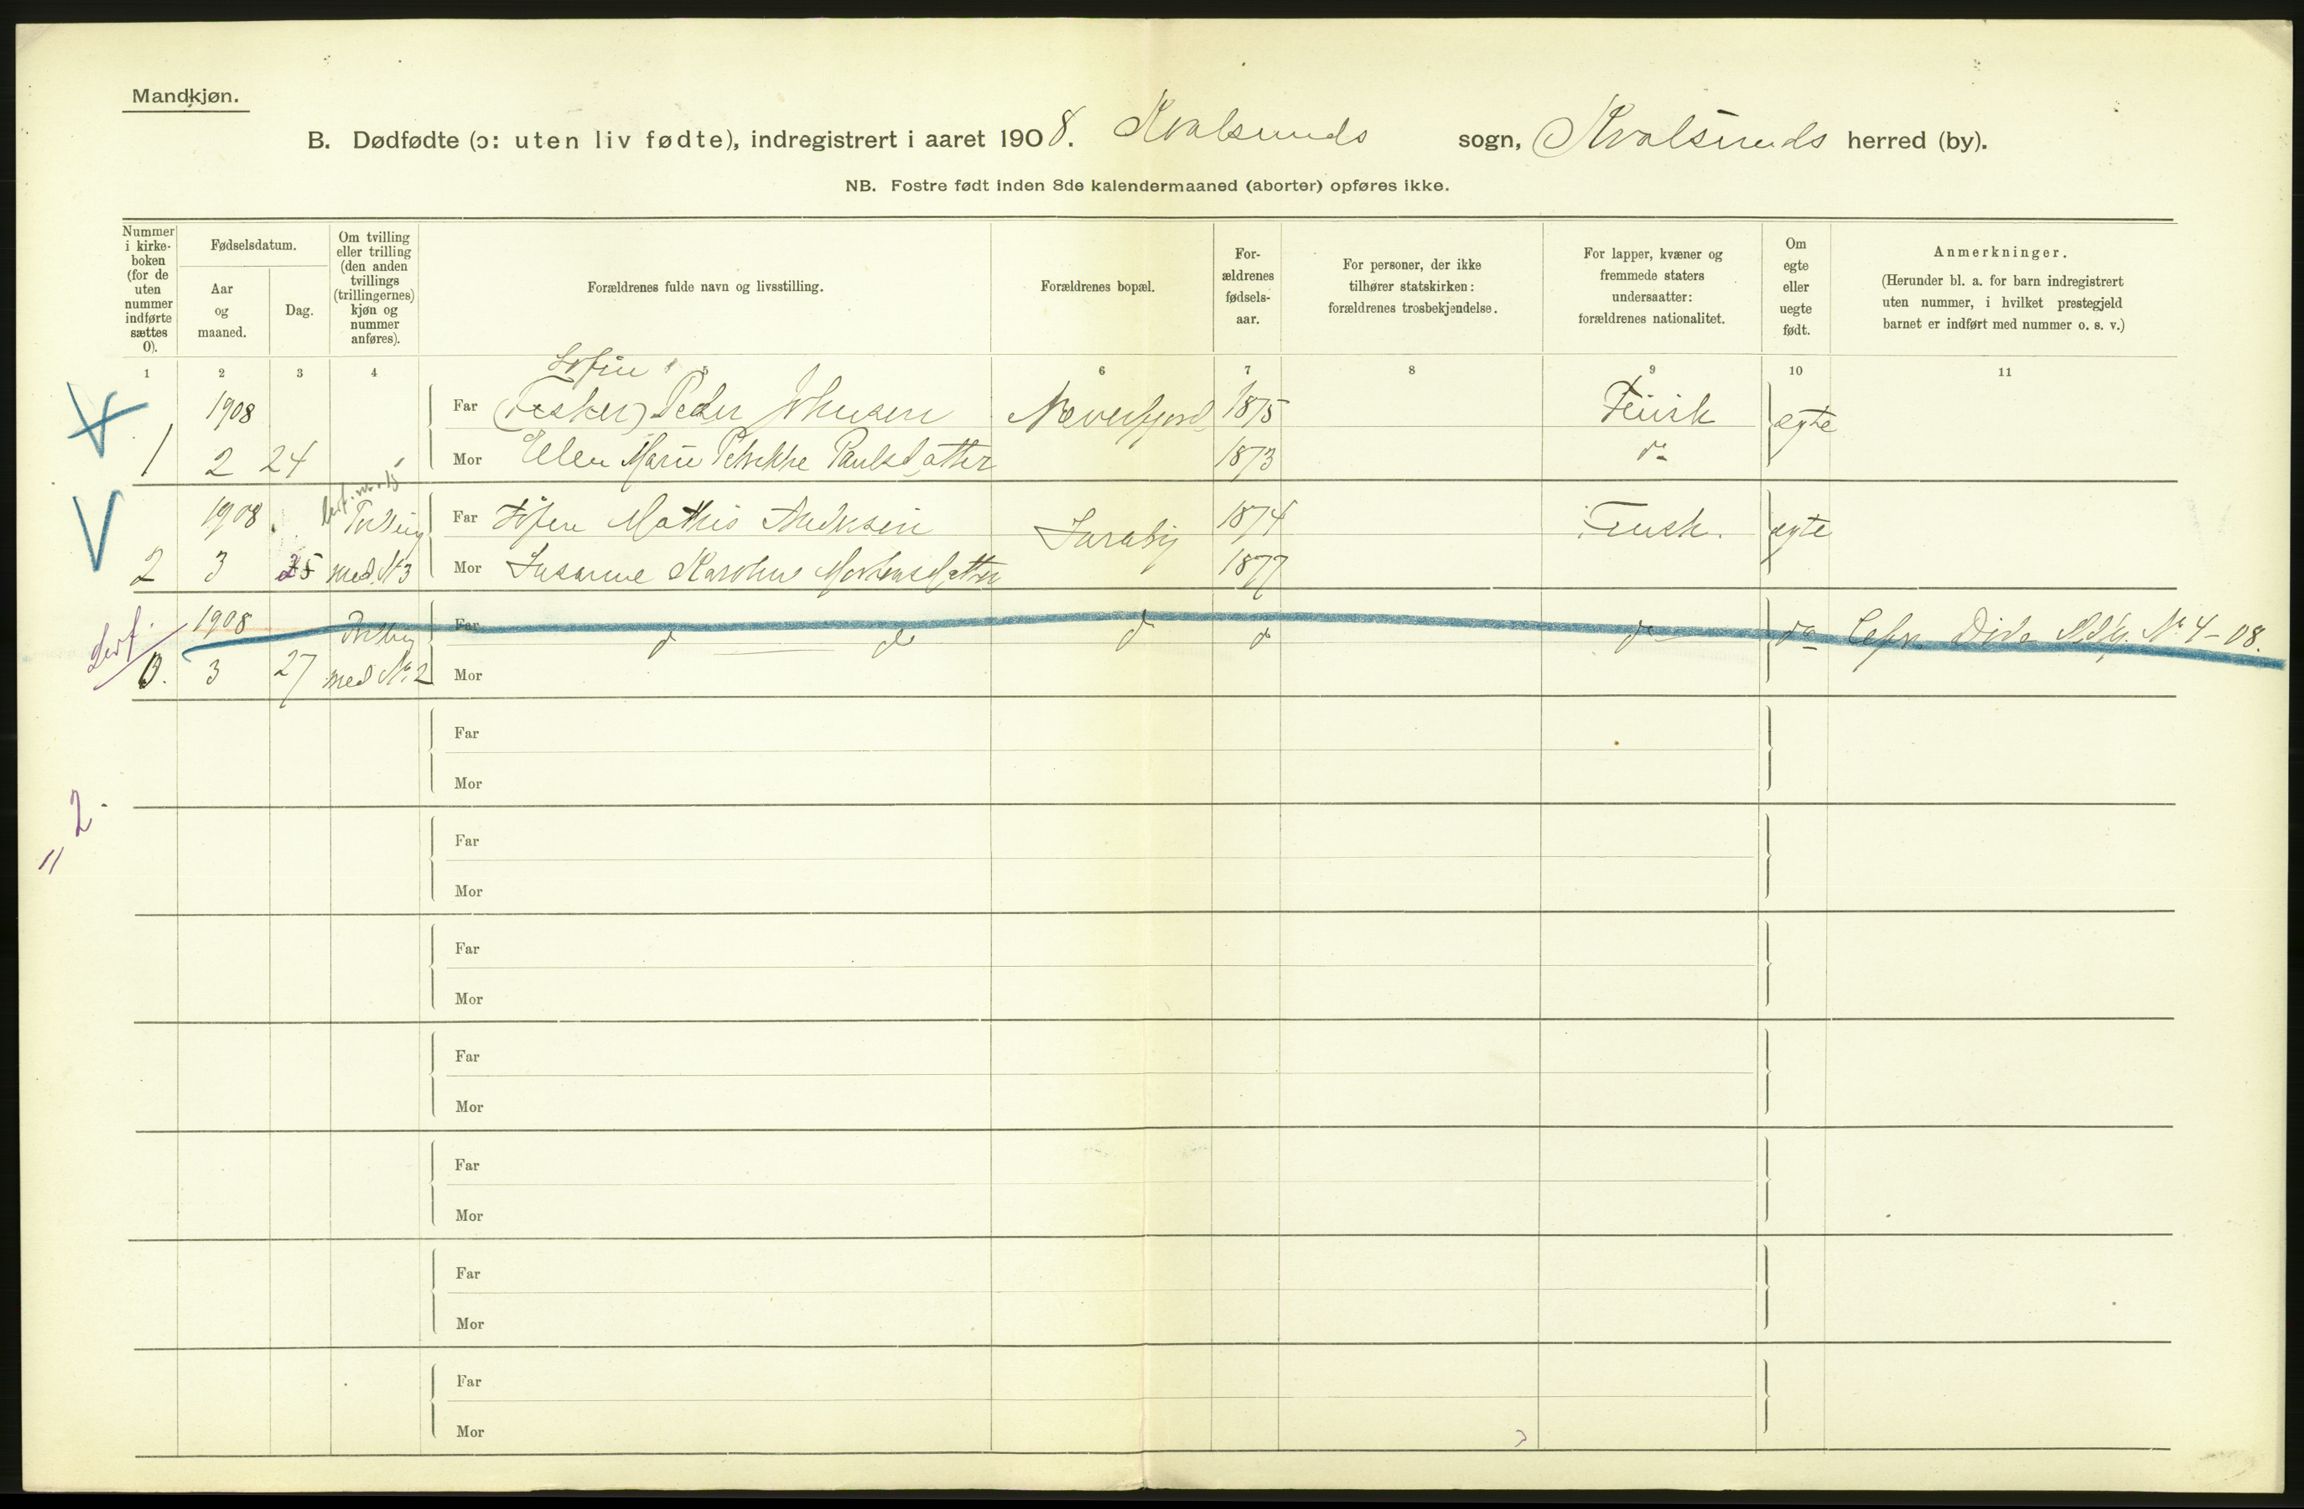 Mandkjøn.
B. Dødfødte (ɔ: uten liv fødte), indregistrert i aaret 1908. Kvalsunds sogn, Kvalsunds herred (by).
NB. Fostre født inden 8de kalendermaaned (aborter) opføres ikke.
Nummer i kirke-boken (for de uten nummer indførte sættes 0).
Fødselsdatum.
Aar og maaned.
Dag.
Om tvilling eller trilling (den anden tvillings (trillingernes) kjøn og nummer anføres).
Forældrenes fulde navn og livsstilling.
Forældrenes bopæl.
For-ældrenes fødsels-aar.
For personer, der ikke tilhører statskirken: forældrenes trosbekjendelse.
For lapper, kvæner og fremmede staters undersaatter: forældrenes nationalitet.
Om egte eller uegte født.
Anmerkninger.
(Herunder bl. a. for barn indregistrert uten nummer, i hvilket prestegjeld barnet er indført med nummer o. s. v.)
1 2 3 4 5 6 7 8 9 10 11
1908 Far (Fisker) Peder Johnsen Næverfjord 1875 egte
1 2 24 Mor Ellen Marie Petrikke Paulsdatter 1873 do
1908. Tvilling Far Mathis Andersen Saraby 1874 Finsk. egte
2 3 25 med No 3 Mor Susanne Karoline Mortensdatter 1877
1908 Tvilling Far do do do do do do Dide No 4-08.
0. 3 27 med No. 2 Mor
Far
Mor
2.
"
Far
Mor
Far
Mor
Far
Mor
Far
Mor
Far
Mor
Far
Mor